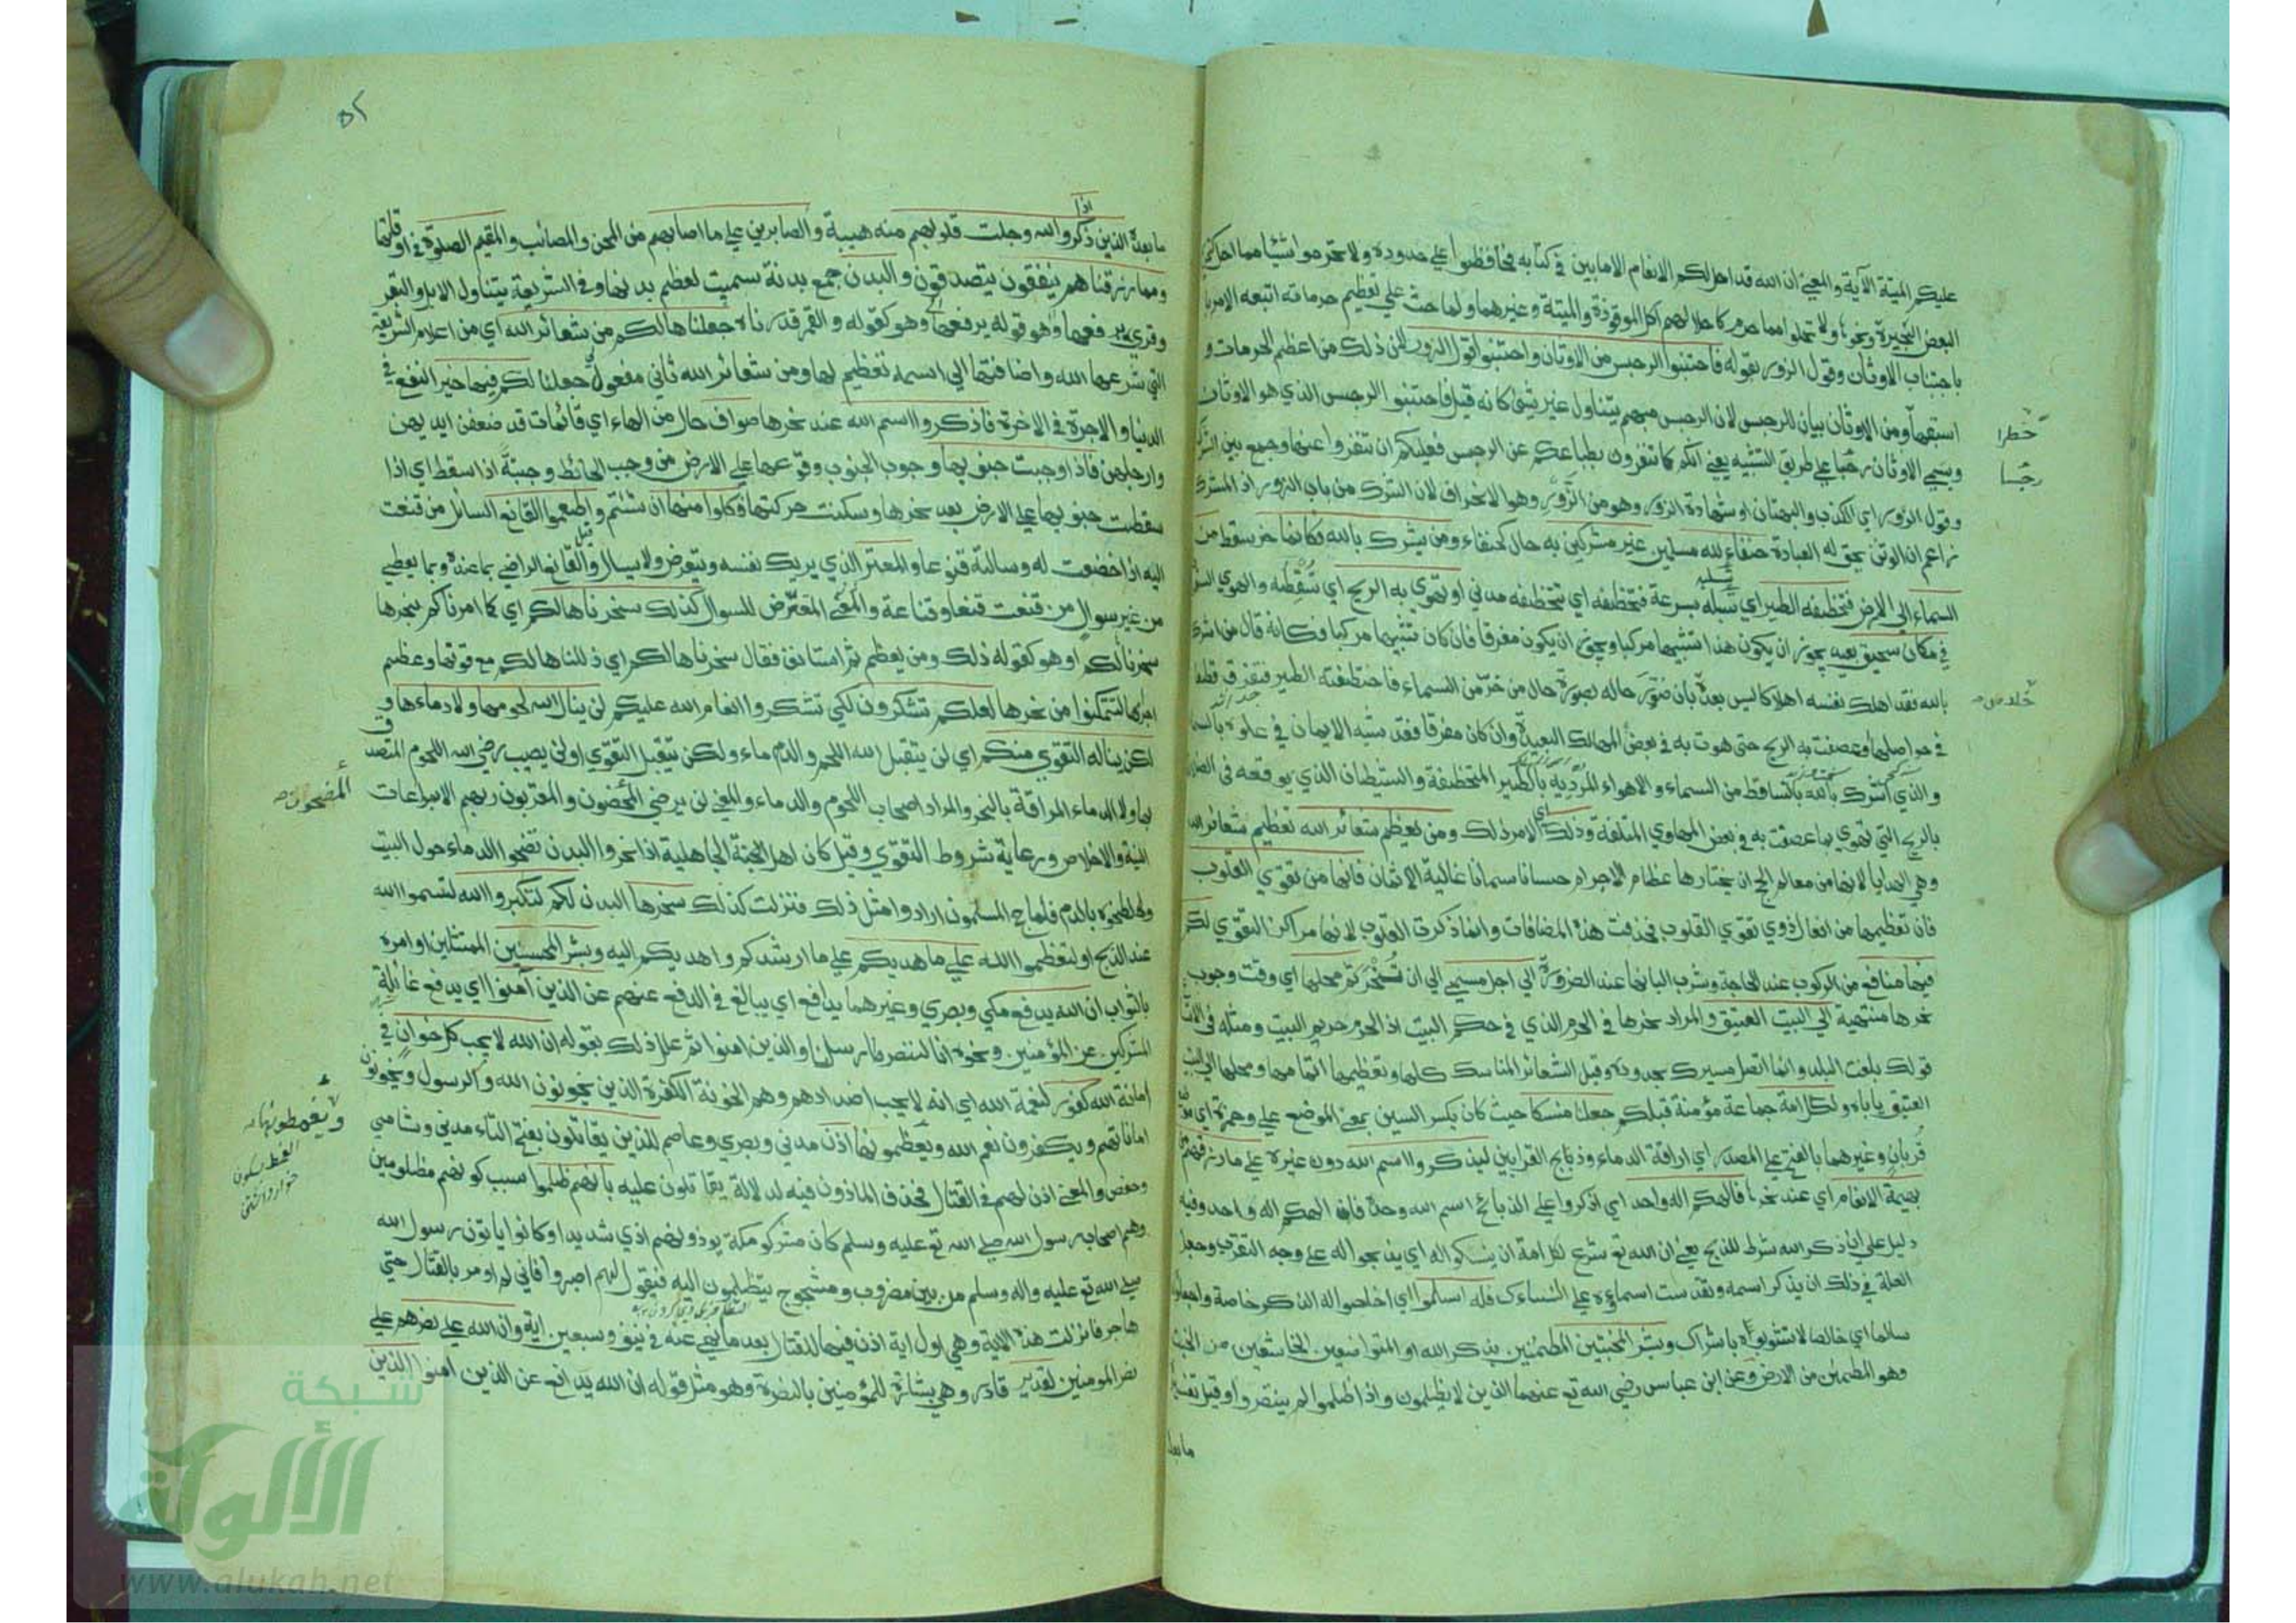 عليكم الميتة الآية والمعنى ان الله قد احل لكم الانعام الا ما بين في كتابه فحافظوا على حدوده ولا تحرموا شيئا مما احل كتحريم
البعض البحيرة ونحوها ولا تحلوا مما حرم كاحلالهم اكل الموقوذة والميتة وغيرهما ولما حث على تعظيم حرماته اتبعه الامر
باجتناب الاوثان وقول الزور بقوله فاجتنبوا الرجس من الاوثان واجتنبوا قول الزور لان ذلك من اعظم الحرمات و
اسبقها ومن الاوثان بيان للرجس لان الرجس مبهم يتناول غير شئ كانه قيل فاجتنبوا الرجس الذي هو الاوثان
وسمي الاوثان رجسا على طريق التشبيه يعني انكم كما تنفرون بطباعكم عن الرجس فعليكم ان تنفروا عنها وجمع بين الشرك
وقول الزور اي الكذب والبهتان او شهادة الزور وهو من الزور وهو الانحراف لان الشرك من باب الزور اذ المشرك
زاعم ان الوثن يحق له العبادة حنفاء لله مسلمين غير مشركين به حال كحنفاء ومن يشرك بالله فكانما خر سقط من
السماء الى الارض فتخطفه الطير اي تسلبه بسرعة فتخطفه اي تتخطفه مدني او تهوي به الريح اي تسقطه والهوي السقوط
في مكان سحيق بعيد يجوز ان يكون هذا تشبيها مركبا ويجوز ان يكون مفرقا فان كان تشبيها مركبا فكانه قال من اشرك
بالله فقد اهلك نفسه اهلاكا ليس بعده بان صور حاله بصورة حال من خر من السماء فاختطفته الطير فتفرق قطعا
في حواصلها او عصفت به الريح حتى هوت به في بعض المهالك البعيدة وان كان مفرقا فقد شبه الايمان في علوه بالسماء
والذي اشرك بالله بالساقط من السماء والاهواء المردية بالطير المتخطفة والشيطان الذي يوقعه في الضلال
بالريح التي تهوي بما عصفت به في بعض المهاوي المتلفة وذلك اي الامر ذلك ومن يعظم شعائر الله تعظيم شعائر الله
وهي الهدايا لانها من معالم الحج ان يختارها عظام الاجرام حسانا سمانا غالية الاثمان فانها من تقوى القلوب
فان تعظيمها من افعال ذوي تقوى القلوب فحذفت هذه المضافات وانما ذكرت القلوب لانها مراكز التقوى لكم
فيها منافع من الركوب عند الحاجة وشرب البانها عند الضرورة الى اجل مسمى الى ان تنحر ثم محلها اي وقت وجوب
نحرها منتهية الى البيت العتيق والمراد نحرها في الحرم الذي في حكم البيت اذ الحرم حريم البيت ومثله في الاتساع
قولك بلغت البلد وانما اتصل مسيرك بحدوده وقيل الشعائر المناسك كلها وتعظيمها اتمامها ومحلها الى البيت
العتيق ياباه ولكل امة جماعة مؤمنة قبلكم جعلنا منسكا حيث كان بكسر السين بمعنى الموضع علي وحمزة اي موضع
قربان وغيرهما بالفتح على المصدر اي اراقة الدماء وذبايح القرابين ليذكروا اسم الله دون غيره على ما رزقهم من
بهيمة الانعام اي عند نحرها فالهكم اله واحد اي اذكروا على الذبائح اسم الله وحده فان الهكم اله واحد وفيه
دليل على ان ذكر الله شرط للذبح يعني ان الله تع شرع لكل امة ان ينسكوا له اي يذبحوا له على وجه التقرب وجعل
العلة في ذلك ان يذكر اسمه وتقدست اسماؤه على النسائك فله اسلموا اي اخلصوا له الذكر خاصة واجعلوه
سالما اي خالصا لا تشوبوه باشراك وبشر المخبتين المطمئنين بذكر الله او المتواضعين الخاشعين من الخبت
وهو المطمئن من الارض وعن ابن عباس رضي الله تع عنهما الذين لا يظلمون واذا ظلموا لم ينتصروا وقيل تفسيره
ما بعده
خطرا
رجسا
خلاص
٥٢
ما بعده الذين اذا ذكروا الله وجلت قلوبهم منه هيبة والصابرين على ما اصابهم من المحن والمصائب والمقيمي الصلوة في اوقاتها
ومما رزقناهم ينفقون يتصدقون والبدن جمع بدنة سميت لعظم بدنها وفي الشريعة يتناول الابل والبقر
وقرئ برفعها وهو كقوله والقمر قدرناه جعلناها لكم من شعائر الله اي من اعلام الشريعة
التي شرعها الله واضافتها الى اسمه تعظيم لها ومن شعائر الله ثاني مفعولي جعلنا لكم فيها خير النفع في
الدنيا والاجرة في الاخرة فاذكروا اسم الله عند نحرها صواف حال من الهاء اي قائمات قد صففن ايديهن
وارجلهن فاذا وجبت جنوبها وجوب الجنوب وقوعها على الارض من وجب الحائط وجبة اذا سقط اي اذا
سقطت جنوبها على الارض بعد نحرها وسكنت حركتها فكلوا منها ان شئتم واطعموا القانع السائل من قنعت
اليه اذا خضعت له وسالته قنوعا والمعتر الذي يريك نفسه ويتعرض ولا يسال وقيل القانع الراضي بما عنده وبما يعطى
من غير سوال من قنعت قنعا وقناعة والمعتر المتعرض للسوال كذلك سخرناها لكم اي كما امرناكم بنحرها
سخرناها لكم او هو كقوله ذلك ومن يعظم ثم استانف فقال سخرناها لكم اي ذللناها لكم مع قوتها وعظم
اجرامها لتتمكنوا من نحرها لعلكم تشكرون لكي تشكروا انعام الله عليكم لن ينال الله لحومها ولا دماءها و
لكن يناله التقوى منكم اي لن يتقبل الله اللحم والدماء ولكن يتقبل التقوى او لن يصيب رضى الله اللحوم المتصدق
بها ولا الدماء المراقة بالنحر والمراد اصحاب اللحوم والدماء والمعنى لن يرضي المضحون والمقربون ربهم الا بمراعات
النية والاخلاص ورعاية شروط التقوى وقيل كان اهل الجاهلية اذا نحروا البدن نضحوا الدماء حول البيت
ولطخوه بالدم فلما حج المسلمون ارادوا مثل ذلك فنزلت كذلك سخرها البدن لكم لتكبروا الله لتسموا الله
عند الذبح او لتعظموا الله على ما هديكم على ما ارشدكم واهديكم اليه وبشر المحسنين الممتثلين اوامره
بالثواب ان الله يدفع مكي وبصري وغيرهما يدافع اي يبالغ في الدفع عنهم عن الذين آمنوا اي يدفع غائلة
المشركين عن المؤمنين ونحوه انا لننصر رسلنا والذين امنوا ثم علل ذلك بقوله ان الله لا يحب كل خوان في
امانة الله كفور لنعمة الله اي انه لا يحب اضدادهم وهم الخونة الكفرة الذين يخونون الله والرسول ويخونون
اماناتهم ويكفرون نعم الله ويغمطونها اذن مدني وبصري وعاصم للذين يقاتلون بفتح التاء مدني وشامي
وحفص والمعنى اذن لهم في القتال فحذف الماذون فيه لدلالة يقاتلون عليه بانهم ظلموا بسبب كونهم مظلومين
وهم اصحاب رسول الله صلى الله تع عليه وسلم كان مشركو مكة يوذونهم اذى شديدا وكانوا ياتون رسول الله
صلى الله تع عليه واله وسلم من بين مضروب ومشجوج يتظلمون اليه فيقول لهم اصبروا فاني لم اومر بالقتال حتى
هاجر فانزلت هذه الاية وهي اول اية اذن فيها للقتال بعد ما نهي عنه في نيف وسبعين اية وان الله على نصرهم على
نصر المومنين لقدير قادر وهي بشارة للمؤمنين بالنصرة وهو مثل قوله ان الله يدافع عن الذين امنوا الذين
المضحون
ويغمطونها
شبكة
الألوكة
www.alukah.net